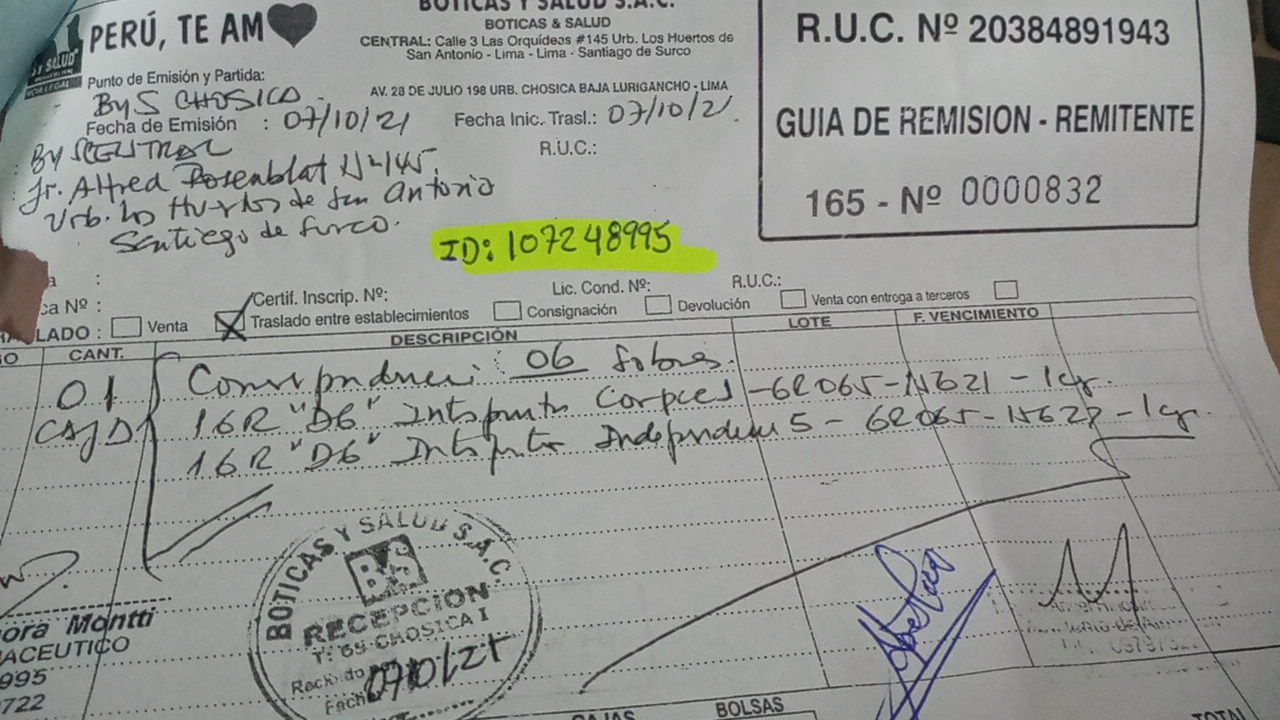 BOTICAS Y SALUD S.A.C.
PERÚ, TE AM
BOTICAS & SALUD
CENTRAL: Calle 3 Las Orquídeas #145 Urb. Los Huertos de
San Antonio - Lima - Lima - Santiago de Surco
Y SALUD
Punto de Emisión y Partida:
AV. 28 DE JULIO 198 URB. CHOSICA BAJA LURIGANCHO - LIMA
ByS CHOSICA
Fecha de Emisión : 07/10/21
Fecha Inic. Trasl.: 07/10/21.
R.U.C.:
ByS CENTRAL
Jr. Alfred Rosenblat Nº 145.
Urb. los Huertos de San Antonio
Santiago de Surco.
ID: 107248995
R.U.C. Nº 20384891943
GUIA DE REMISION - REMITENTE
165 - Nº 0000832
ca Nº :
Certif. Inscrip. Nº:
Lic. Cond. Nº:
R.U.C.:
LADO :
Venta
Traslado entre establecimientos
Consignación
Devolución
Venta con entroga a terceros
CANT.
DESCRIPCIÓN
LOTE
F. VENCIMIENTO
01
CAJA
06 Sobres.
16R "D6"
16R "D6"
BOTICAS Y SALUD S.A.C.
B&S
RECEPCION
T: 69 CHOSICA I
Recibido
Fecha 07/10/21
ora Montti
ACEUTICO
995
722
CAJAS
BOLSAS
TOTAL